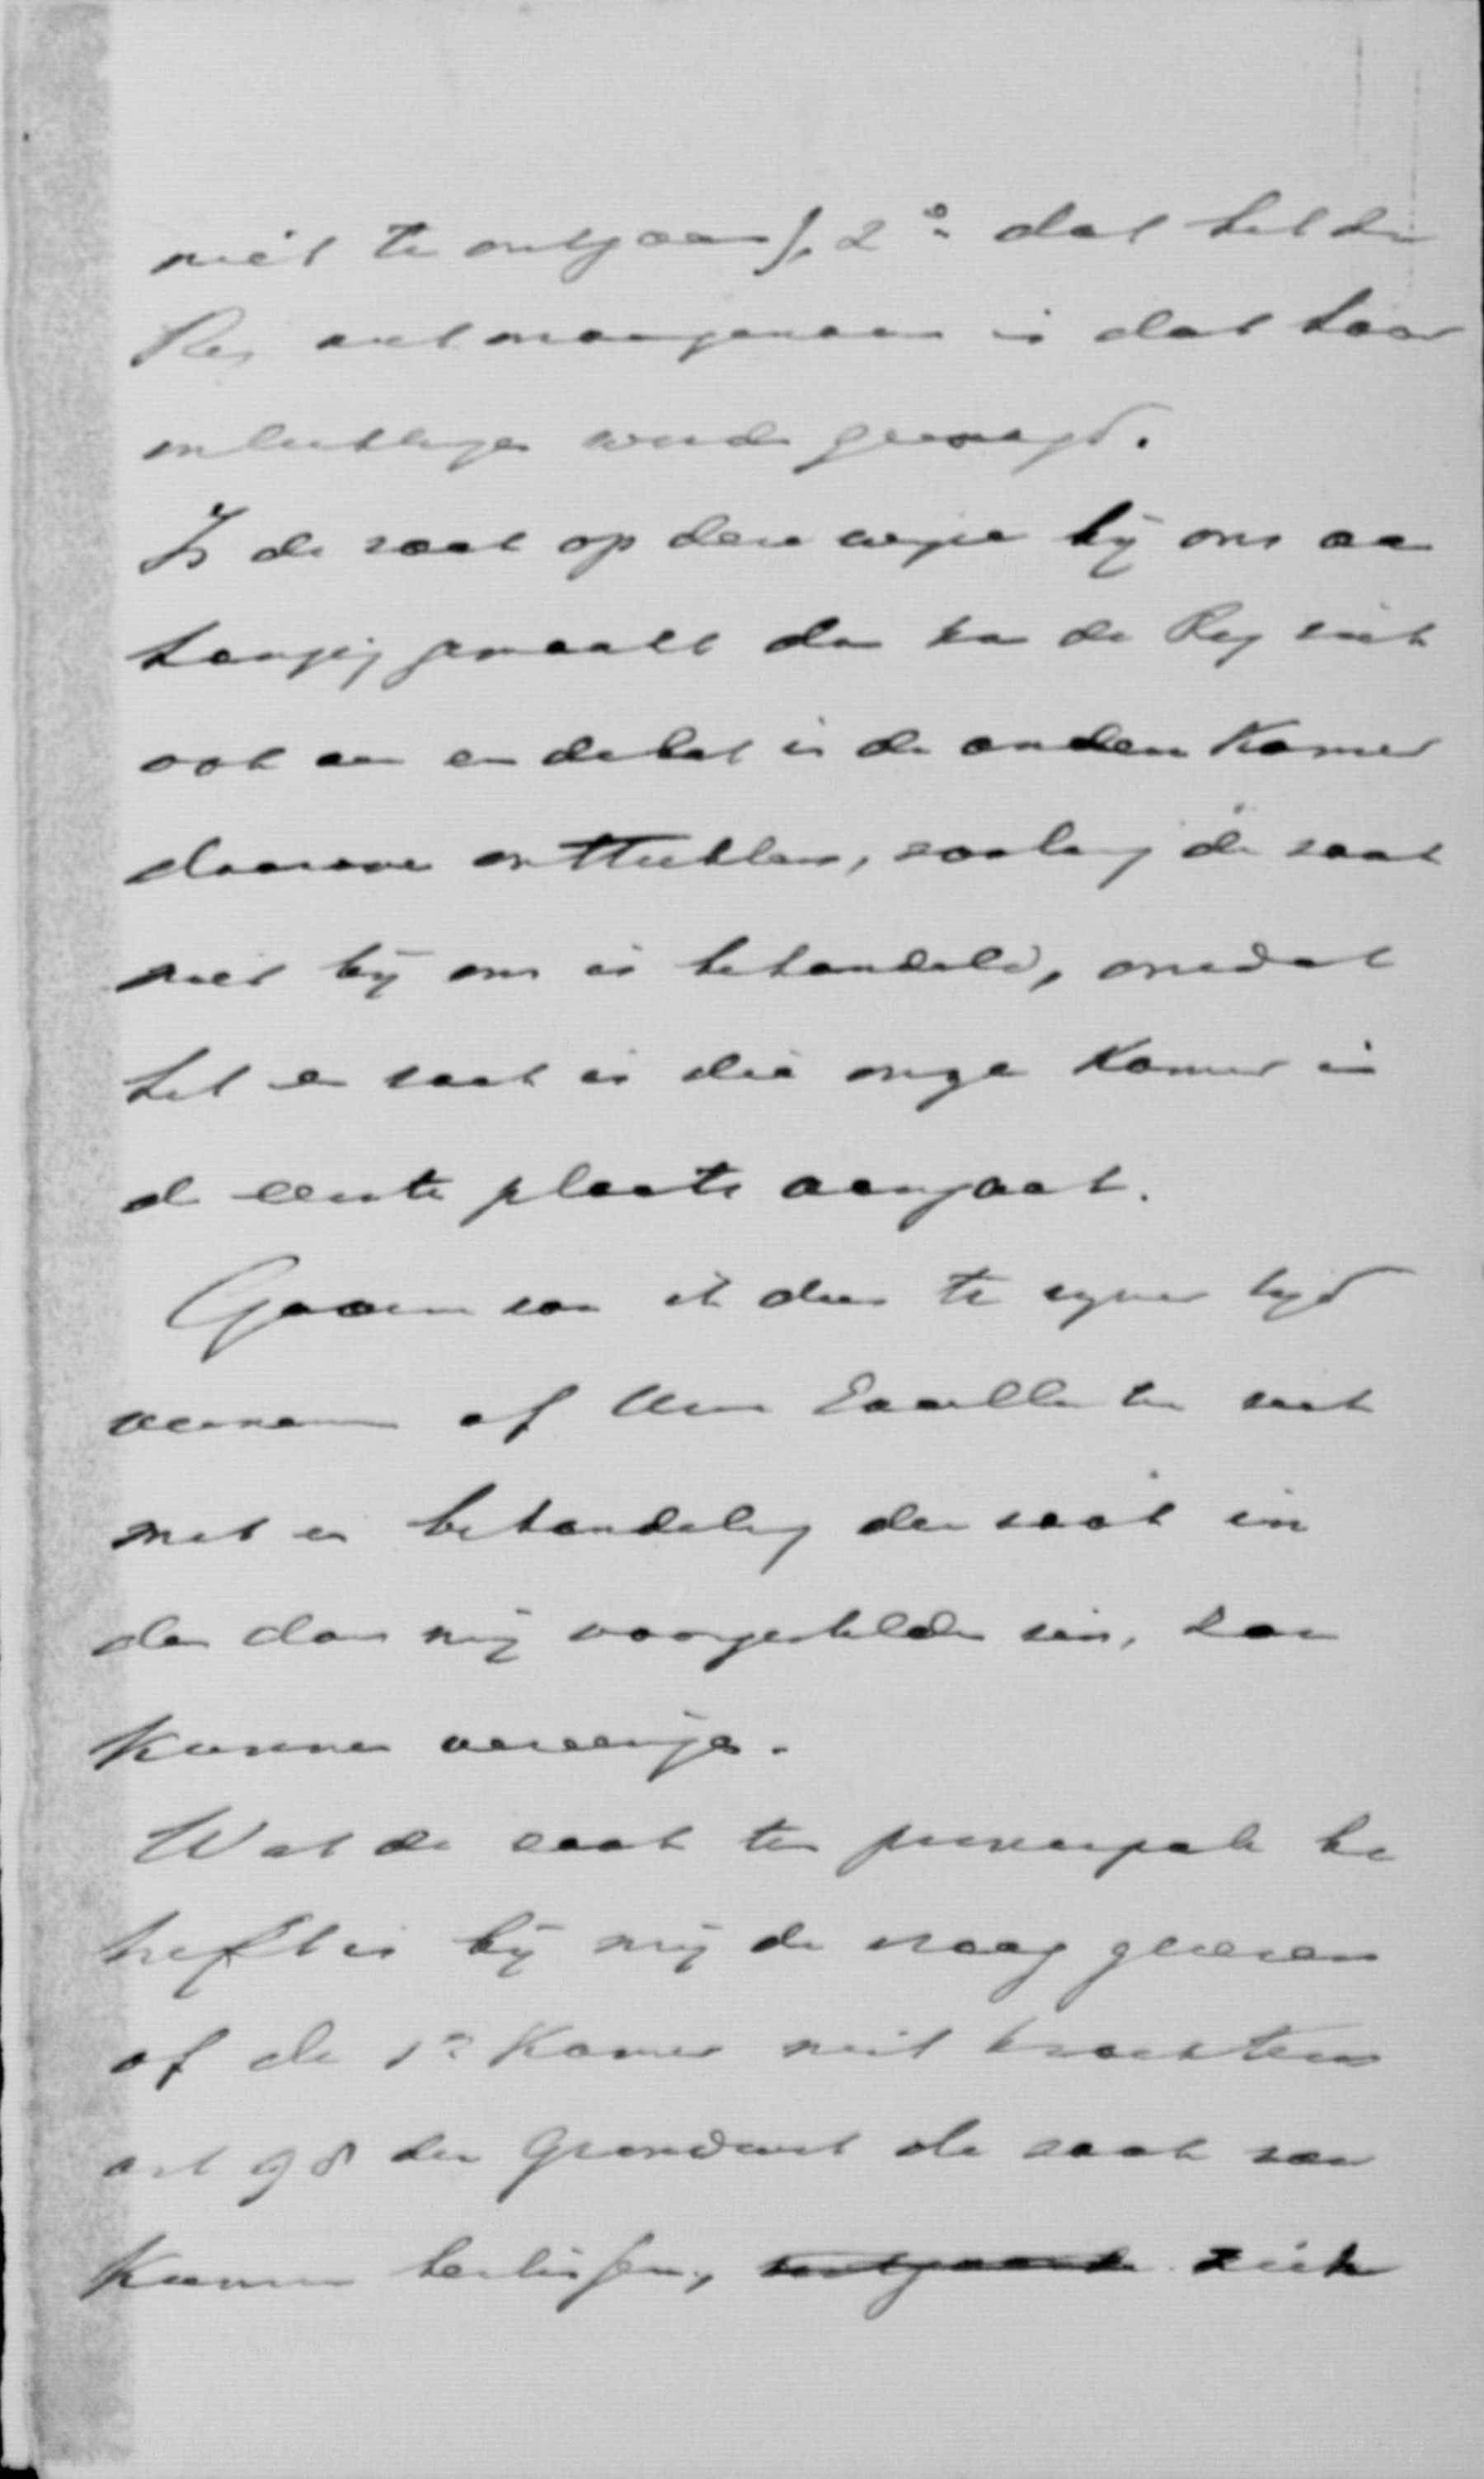 niet te ontgaan), 2°. dat het de
Reg niet onaangenaam is dat haar
inlichtingen werden gevraagd.
Is de zaak op deze wijze bij ons aan
hangig gemaakt dan kan de Reg zich
ook aan een debat in de andere Kamer
daarover onttrekken, zoolang de zaak
niet bij ons is behandeld, omdat
het een zaak is die onze Kamer in
de eerste plaats aangaat.
Gaarne zou ik dus te zijner tijd
vernemen of Uwe Excellentie zich
met een behandeling der zaak in
den door mij voorgestelden zin, zou
kunnen vereenigen.
Wat de zaak ten principale be
treft is bij mij de vraag gerezen
of de 1e Kamer niet krachtens
art 98 der Grondwet de zaak zou
kunnen beslissen, zich